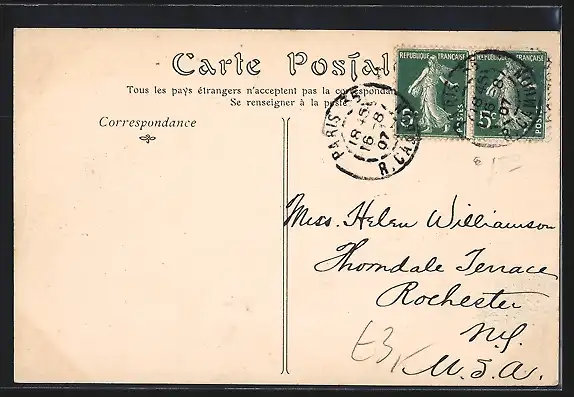 Carte Postale
Tous les pays étrangers n'acceptent pas la correspondance
Se renseigner à la poste
Correspondance
REPUBLIQUE FRANÇAISE
5c
POSTES
REPUBLIQUE FRANÇAISE
5c
POSTES
PARIS
18 45
16 -8
07
Miss. Helen Williamson
Thorndale Terrace
Rochester
N.Y.
U.S.A.